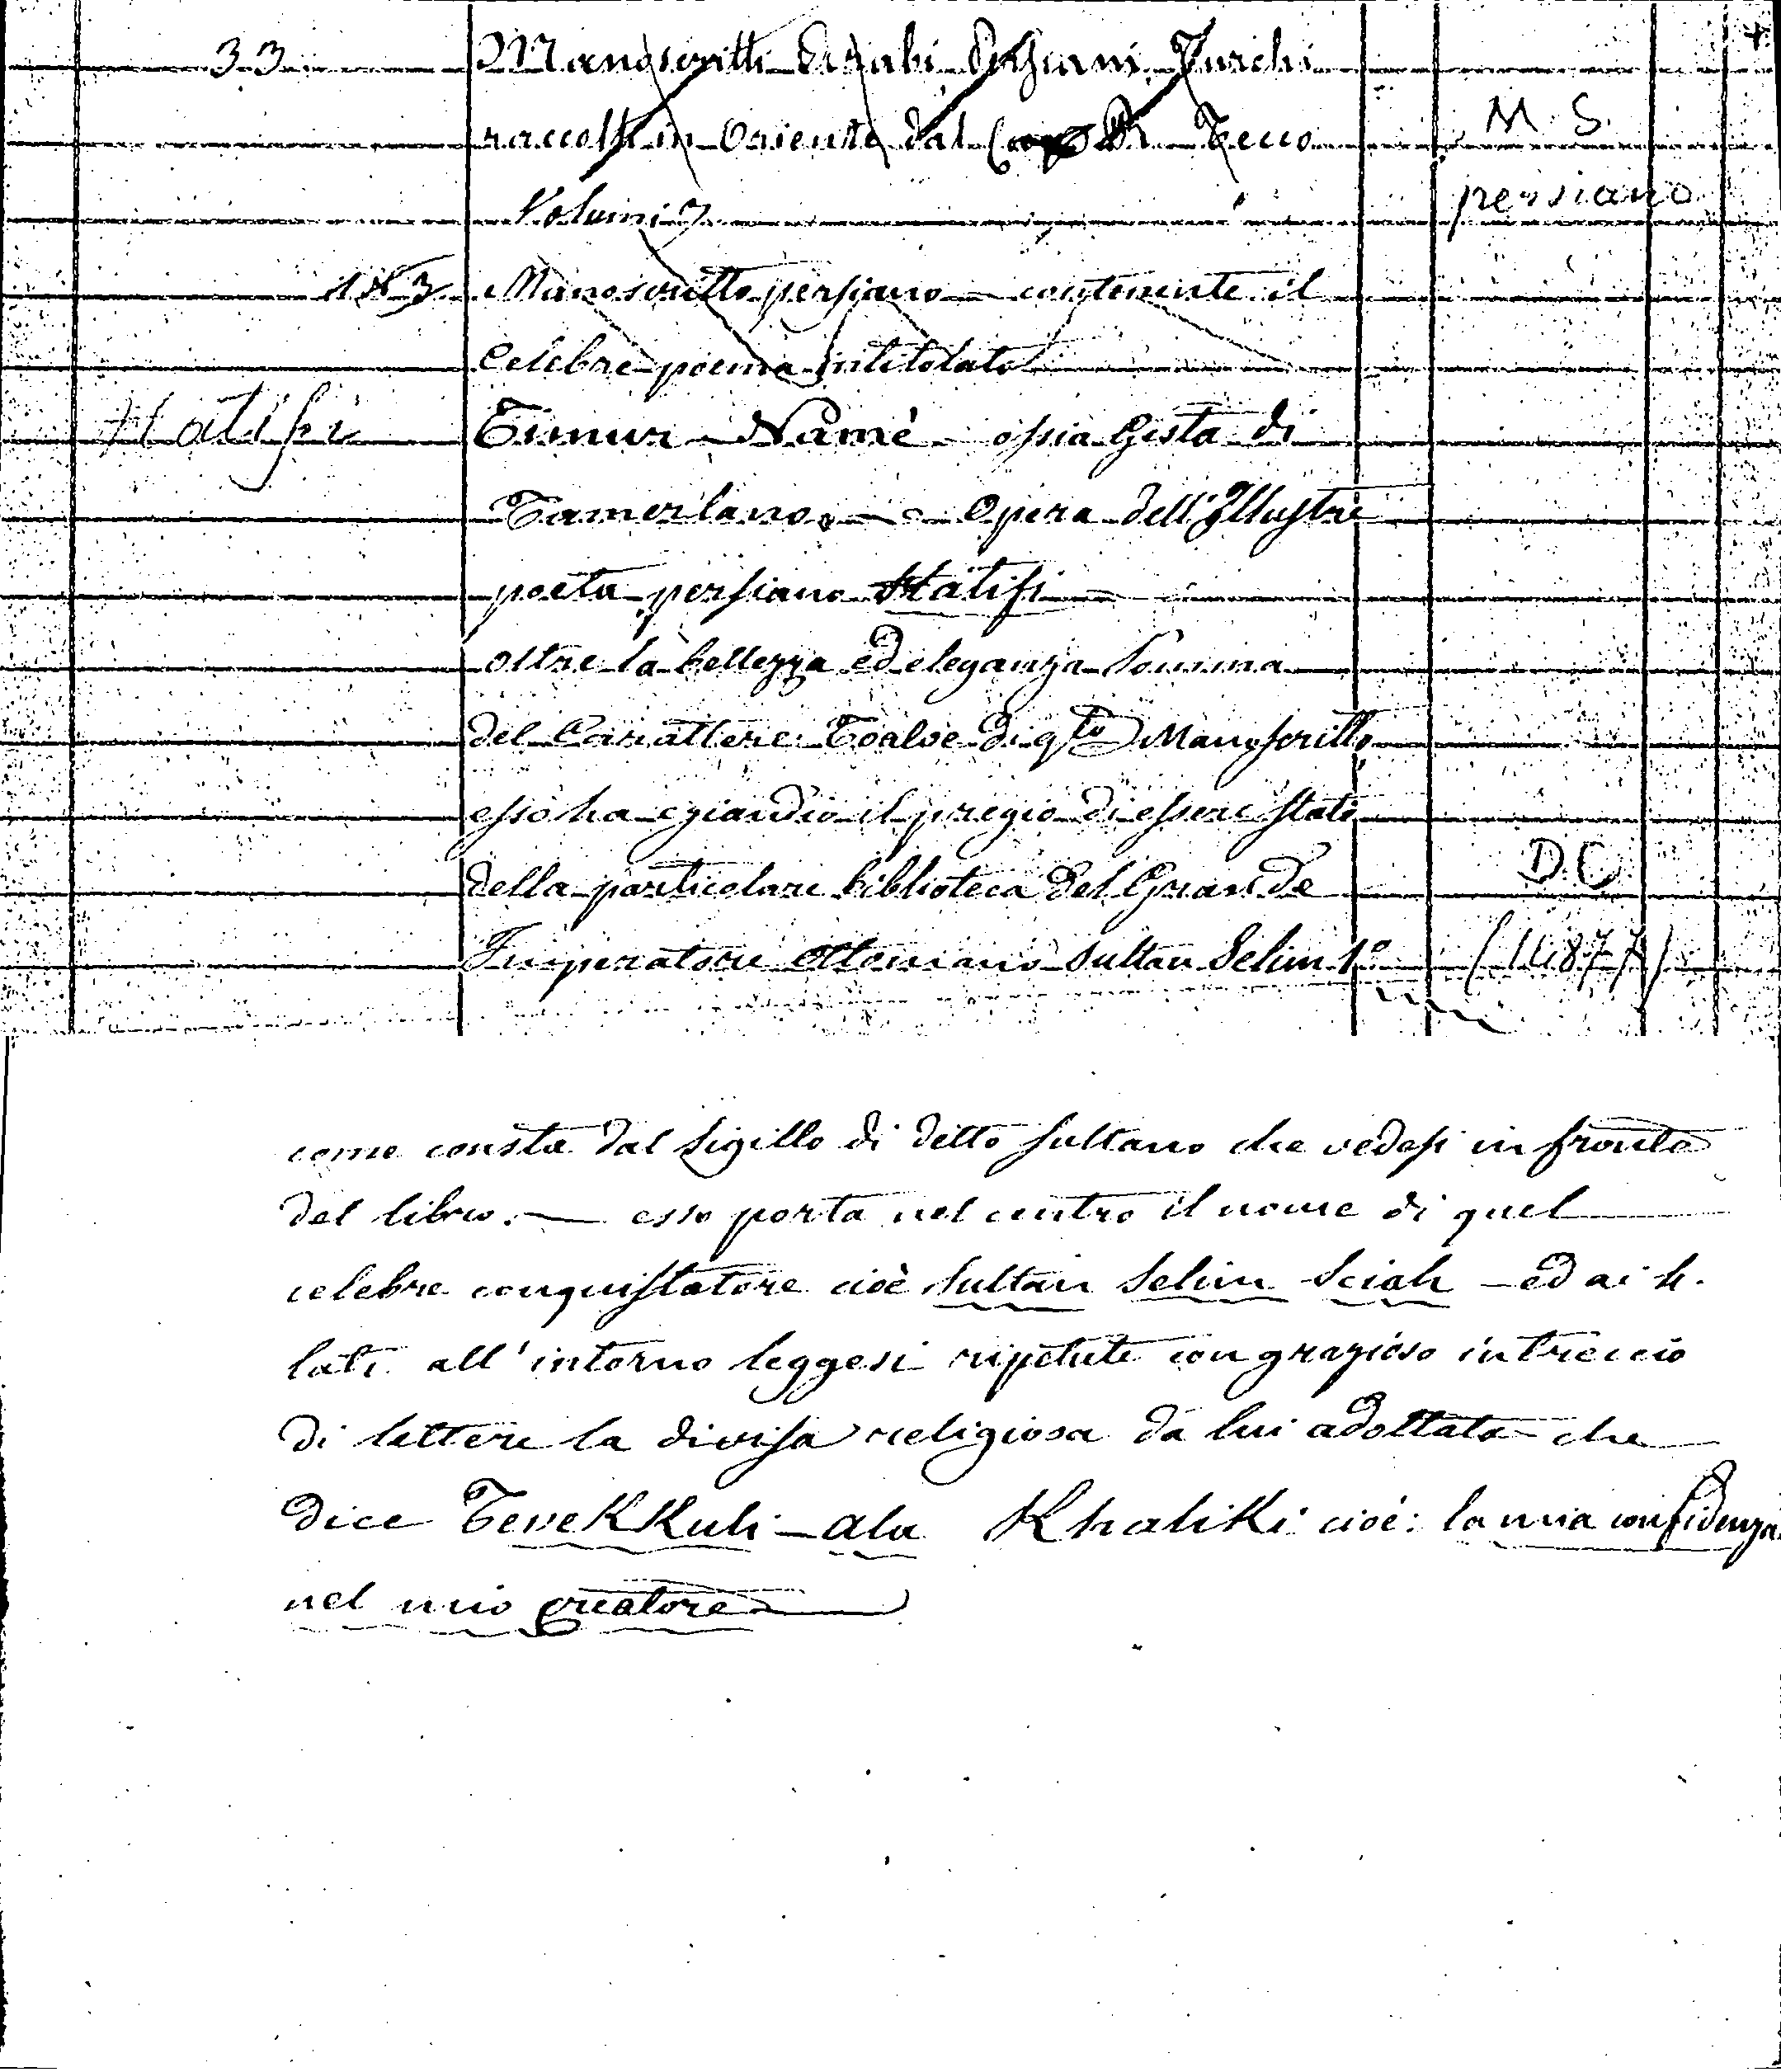 33 Manoscritti Arabi Persiani Turchi
raccolti in Oriente dal Tecco
M. S.
Volumi 3
persiano
183 Manoscritto persiano — contenente il
Celebre poema intitolato
Hatifi Timur Namè — ossia Gesta di
Tamerlano — Opera dell'Illustre
poeta persiano Hatifi —
oltre la bellezza ed eleganza somma
del Carattere di qto Manoscritto
esso ha eziandio il pregio di essere stato
della particolare biblioteca del Grande
D. C.
Imperatore Ottomano Sultan Selim 1o
(11877)
come consta dal sigillo di detto sultano che vedesi in fronte
del libro. — esso porta nel centro il nome di quel
celebre conquistatore cioè Sultan Selim Sciah — ed ai 4.
lati all'intorno leggesi ripetute con grazioso intreccio
di lettere la divisa religiosa da lui adottata che
dice Tevekkuli — ala Khaliki cioè: la mia confidenza
nel mio creatore —